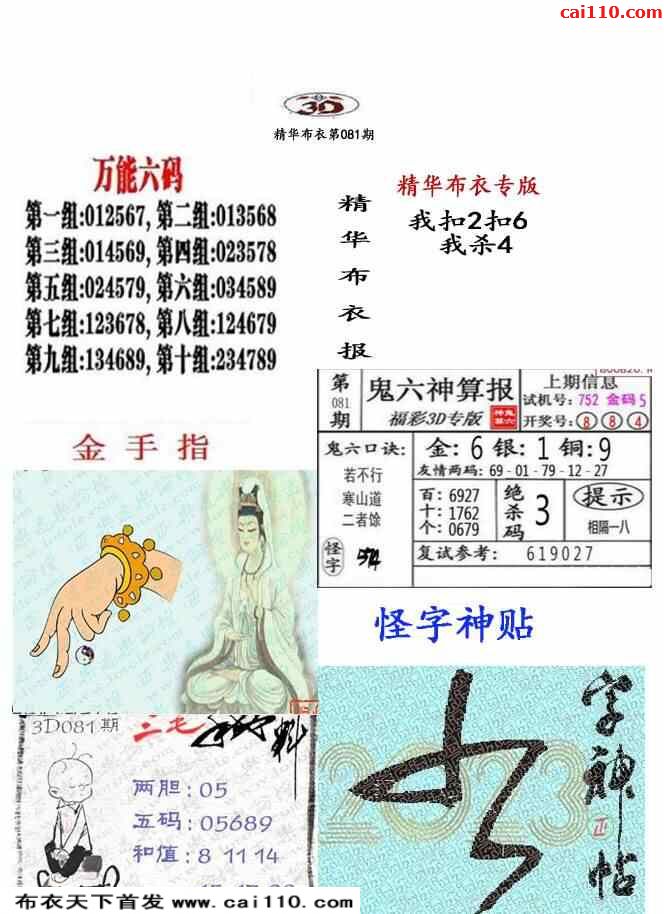 cai110.com
3D
精华布衣第081期
万能六码
第一组:012567,第二组:013568
第三组:014569,第四组:023578
第五组:024579,第六组:034589
第七组:123678,第八组:124679
第九组:134689,第十组:234789
精华布衣报
精华布衣专版
我扣2扣6
我杀4
第081期
鬼六神算报
福彩3D专版
上期信息
试机号: 752 金码 5
开奖号: 8 8 4
鬼六口诀:
若不行
寒山道
二者馀
怪字
金: 6 银: 1 铜: 9
友情两码: 69-01-79-12-27
百: 6927
十: 1762
个: 0679
绝杀码 3
提示
相隔一八
复试参考: 619027
金手指
怪字神贴
3D081期
三毛
两胆: 05
五码: 05689
和值: 8 11 14
2023
字神帖
布衣天下首发 www.cai110.com